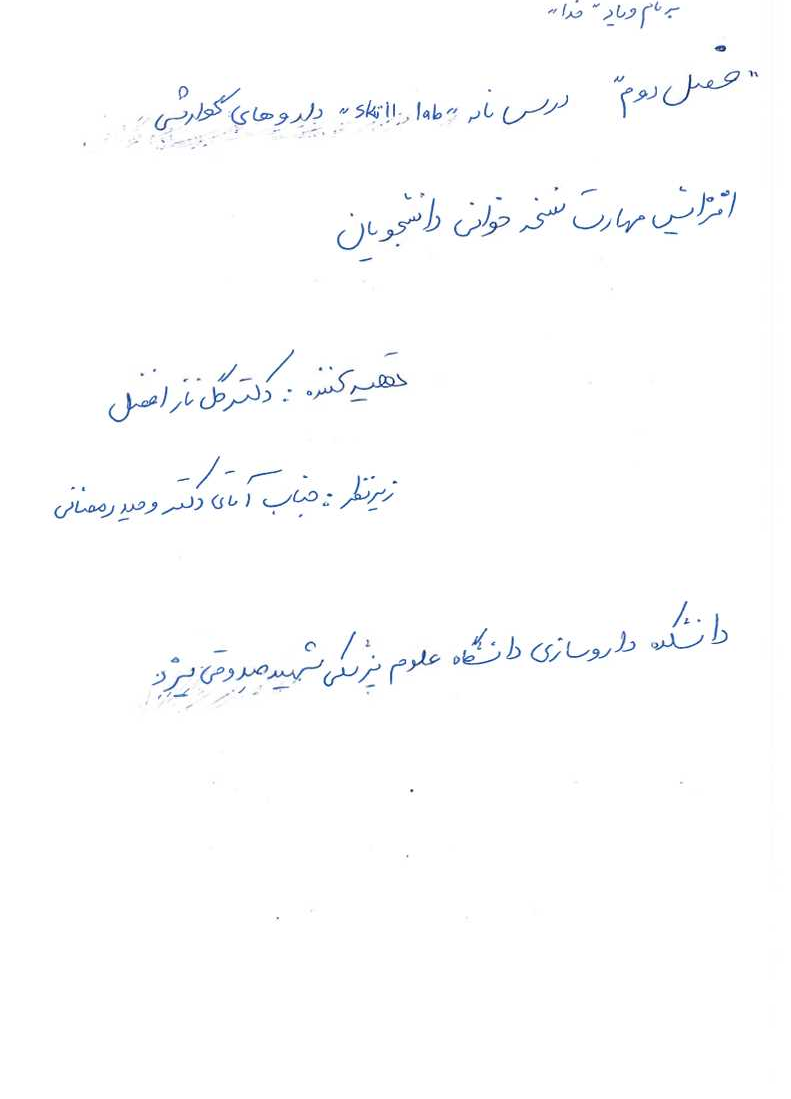 به نام و یاد "خدا"
"فصل دوم" درس نامه "skill lab" داروهای گوارشی
افزایش مهارت نسخه خوانی دانشجویان
تهیه کننده : دکتر گل ناز افضل
زیر نظر : جناب آقای دکتر وحید رمضانی
دانشکده داروسازی دانشگاه علوم پزشکی شهید صدوقی یزد